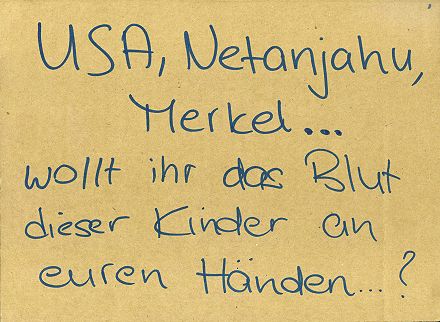 USA, Netanjahu,
Merkel...
wollt ihr das Blut
dieser Kinder an
euren Händen...?